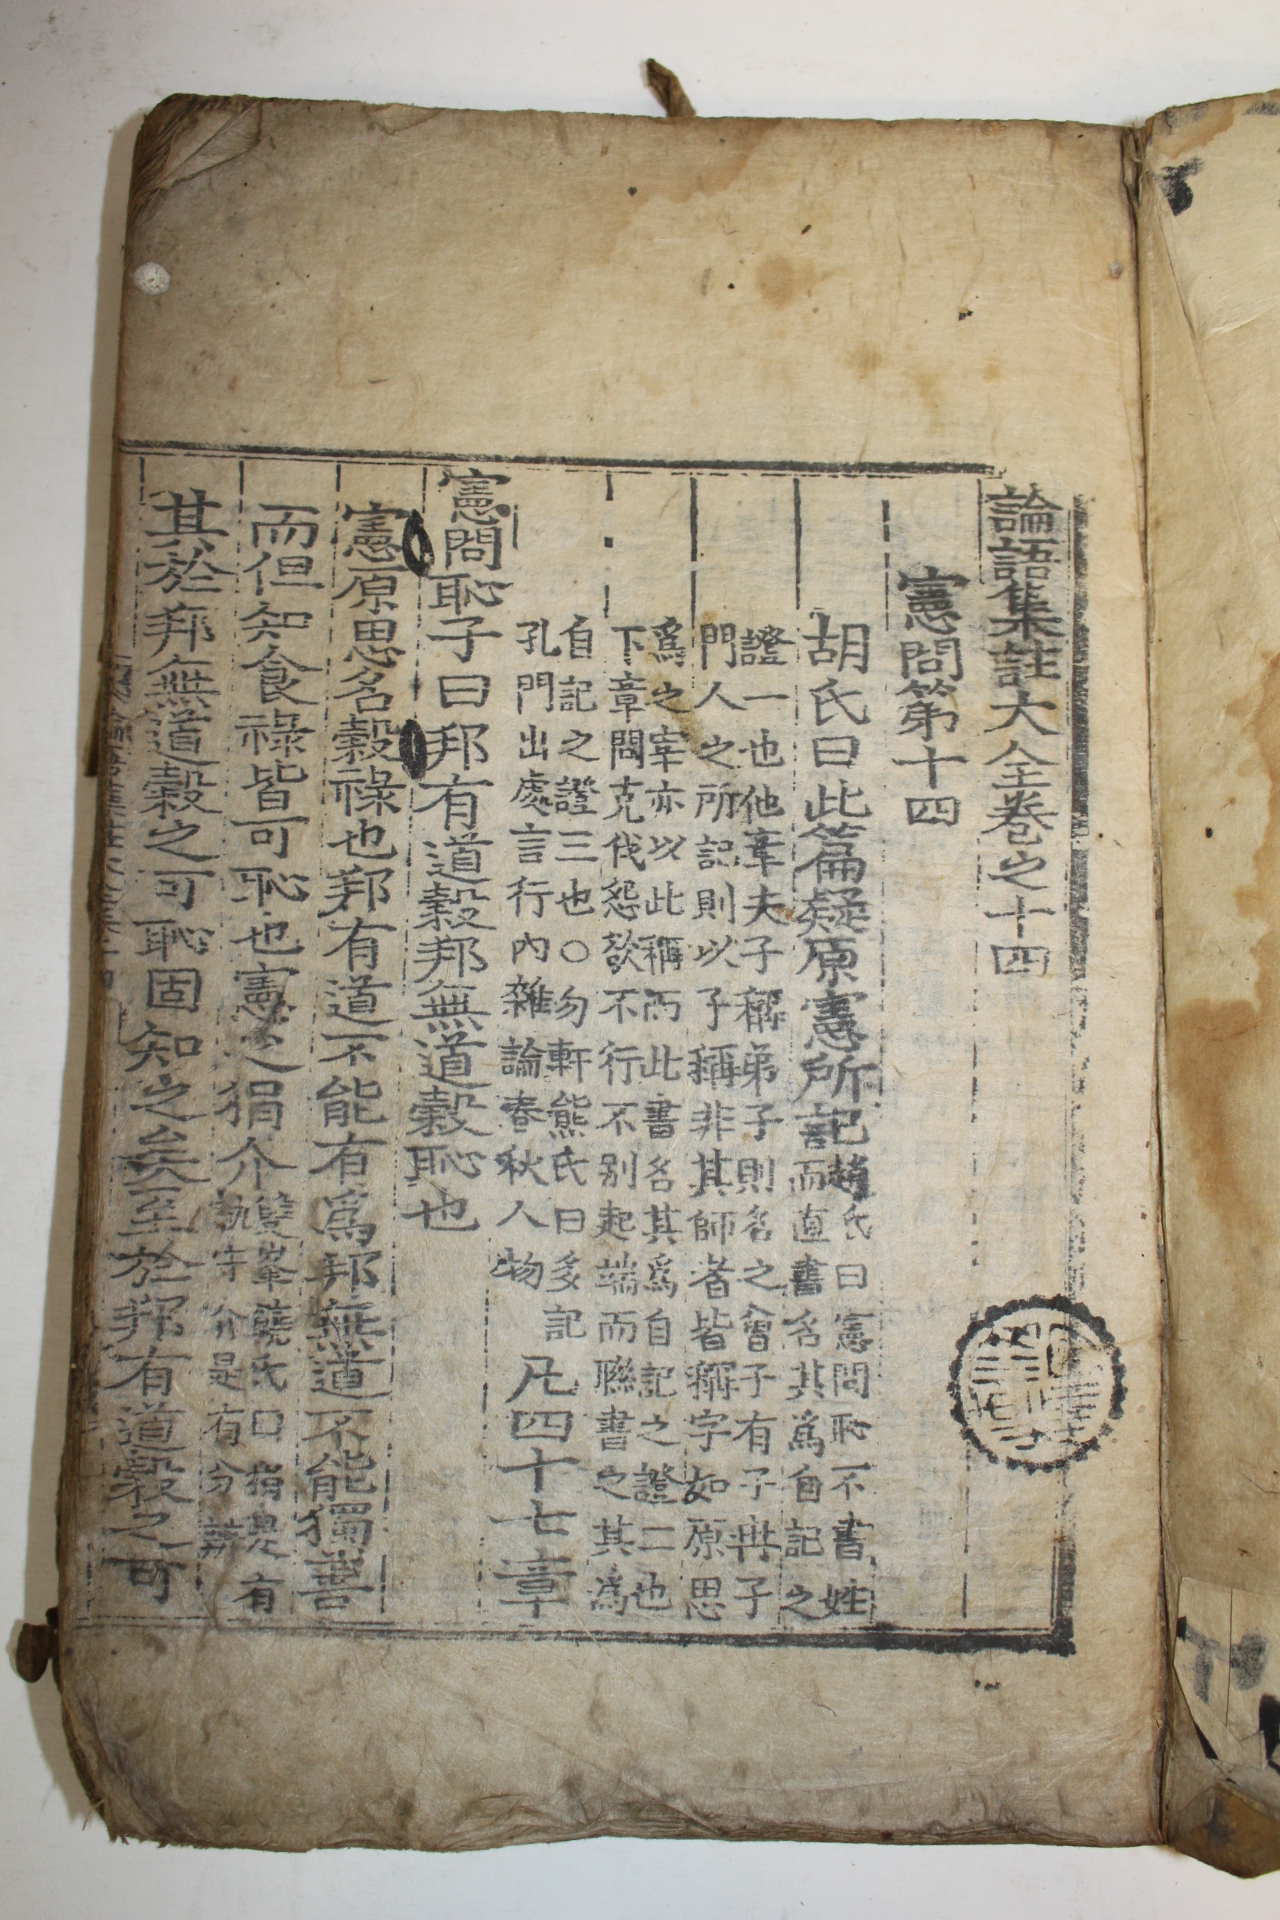 論語集註大全卷之十四
憲問第十四
胡氏曰此篇疑原憲所記趙氏曰憲問恥不書姓
而直書名其爲自記之
證一也他章夫子稱弟子則名之曾子有子冉子
門人之所記則以子稱非其師者皆稱字如原思
爲之宰亦以此稱而此書名其爲自記之證二也
下章問克伐怨欲不行不别起端而聯書之其爲
自記之證三也○勿軒熊氏曰多記
孔門出處言行內雜論春秋人物
凡四十七章
憲問恥子曰邦有道穀邦無道穀恥也
憲原思名穀祿也邦有道不能有爲邦無道不能獨善
而但知食祿皆可恥也憲之狷介雙峯饒氏曰狷是有
執守介是有分辨
其於邦無道穀之可恥固知之矣至於邦有道穀之可